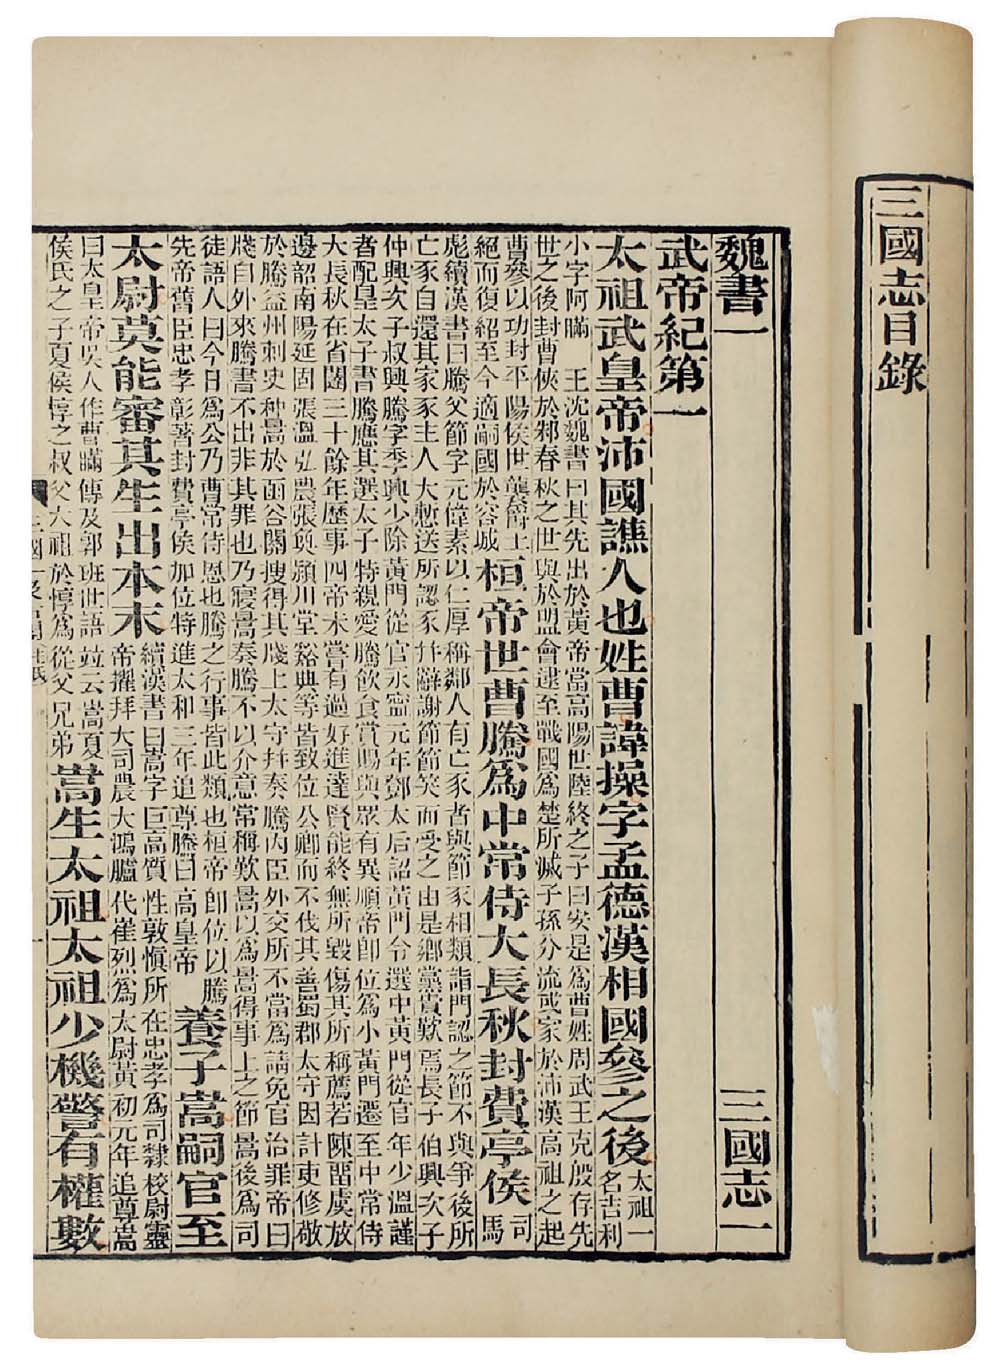 三國志目錄
魏書一　三國志一
武帝紀第一
太祖武皇帝沛國譙人也姓曹諱操字孟德漢相國參之後
太祖一
名吉利
小字阿瞞　王沈魏書曰其先出於黃帝當高陽世陸終之子曰安是爲曹姓周武王克殷存先
世之後封曹俠於邾春秋之世與於盟會逮至戰國爲楚所滅子孫分流或家於沛漢高祖之起
曹參以功封平陽侯世襲爵土
絕而復紹至今適嗣國於容城
桓帝世曹騰爲中常侍大長秋封費亭侯
司
馬
彪續漢書曰騰父節字元偉素以仁厚稱鄰人有亡豕者與節豕相類詣門認之節不與爭後所
亡豕自還其家豕主人大慙送所認豕幷辭謝節節笑而受之由是鄉黨貴歎焉長子伯興次子
仲興次子叔興騰字季興少除黃門從官永寧元年鄧太后詔黃門令選中黃門從官年少溫謹
者配皇太子書騰應其選太子特親愛騰飮食賞賜與眾有異順帝卽位爲小黃門遷至中常侍
大長秋在省闥三十餘年歷事四帝未嘗有過好進達賢能終無所毀傷其所稱薦若陳留虞放
邊韶南陽延固張溫弘農張奐潁川堂谿典等皆致位公卿而不伐其善蜀郡太守因計吏修敬
於騰益州刺史种暠於函谷關搜得其牋上太守幷奏騰內臣外交所不當爲請免官治罪帝曰
牋自外來騰書不出非其罪也乃寢暠奏騰不以介意常稱歎暠以爲暠得事上之節暠後爲司
徒語人曰今日爲公乃曹常侍恩也騰之行事皆此類也桓帝卽位以騰
先帝舊臣忠孝彰著封費亭侯加位特進太和三年追尊騰曰高皇帝
養子嵩嗣官至
太尉莫能審其生出本末
續漢書曰嵩字巨高質性敦愼所在忠孝爲司隸校尉靈
帝擢拜大司農大鴻臚代崔烈爲太尉黃初元年追尊嵩
曰太皇帝吳人作曹瞞傳及郭班世語竝云嵩夏
侯氏之子夏侯惇之叔父太祖於惇爲從父兄弟
嵩生太祖太祖少機警有權數
三國一
一